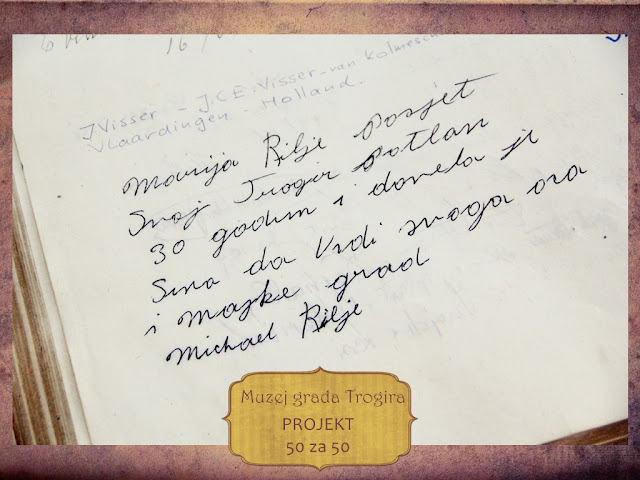 16/
JVisser - J.C.E. Visser-van
Vlaardingen - Holland.
Marija Rilje posjet
Svoj Trogir potlan
30 godin i donela je
Sina da Vidi svoga oca
i majke grad
Michael Rilje
Muzej grada Trogira
PROJEKT
50 za 50